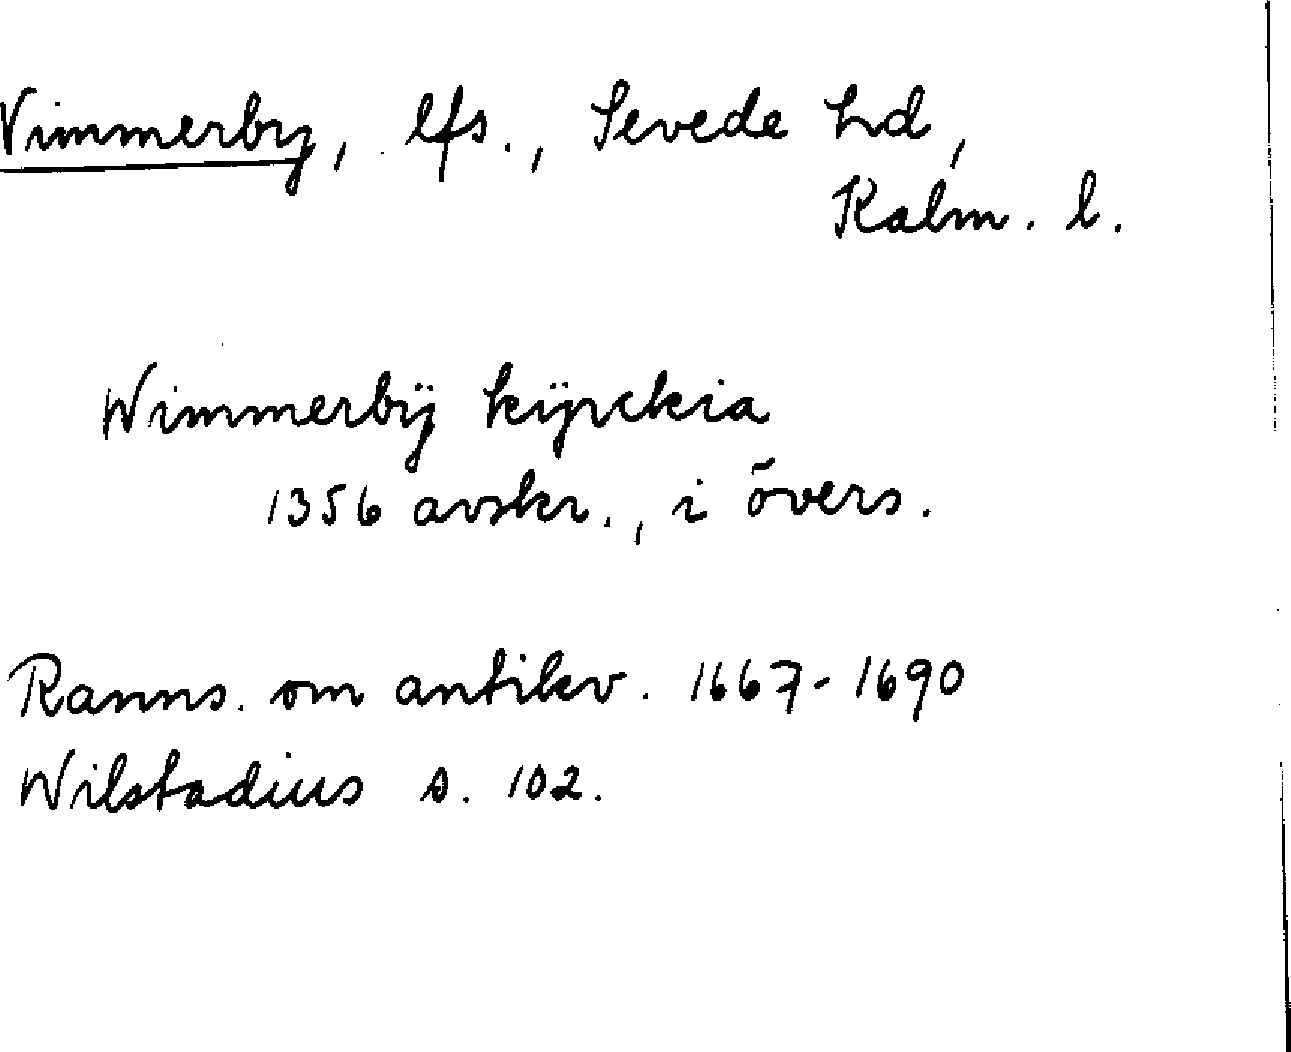 Vimmerby, lfs., Sevede hd,
Kalm. l.
Wimmerbÿ kÿrckia
1356 avskr., i övers.
Ranns. om antikv. 1667-1690
Wilstadius s. 102.